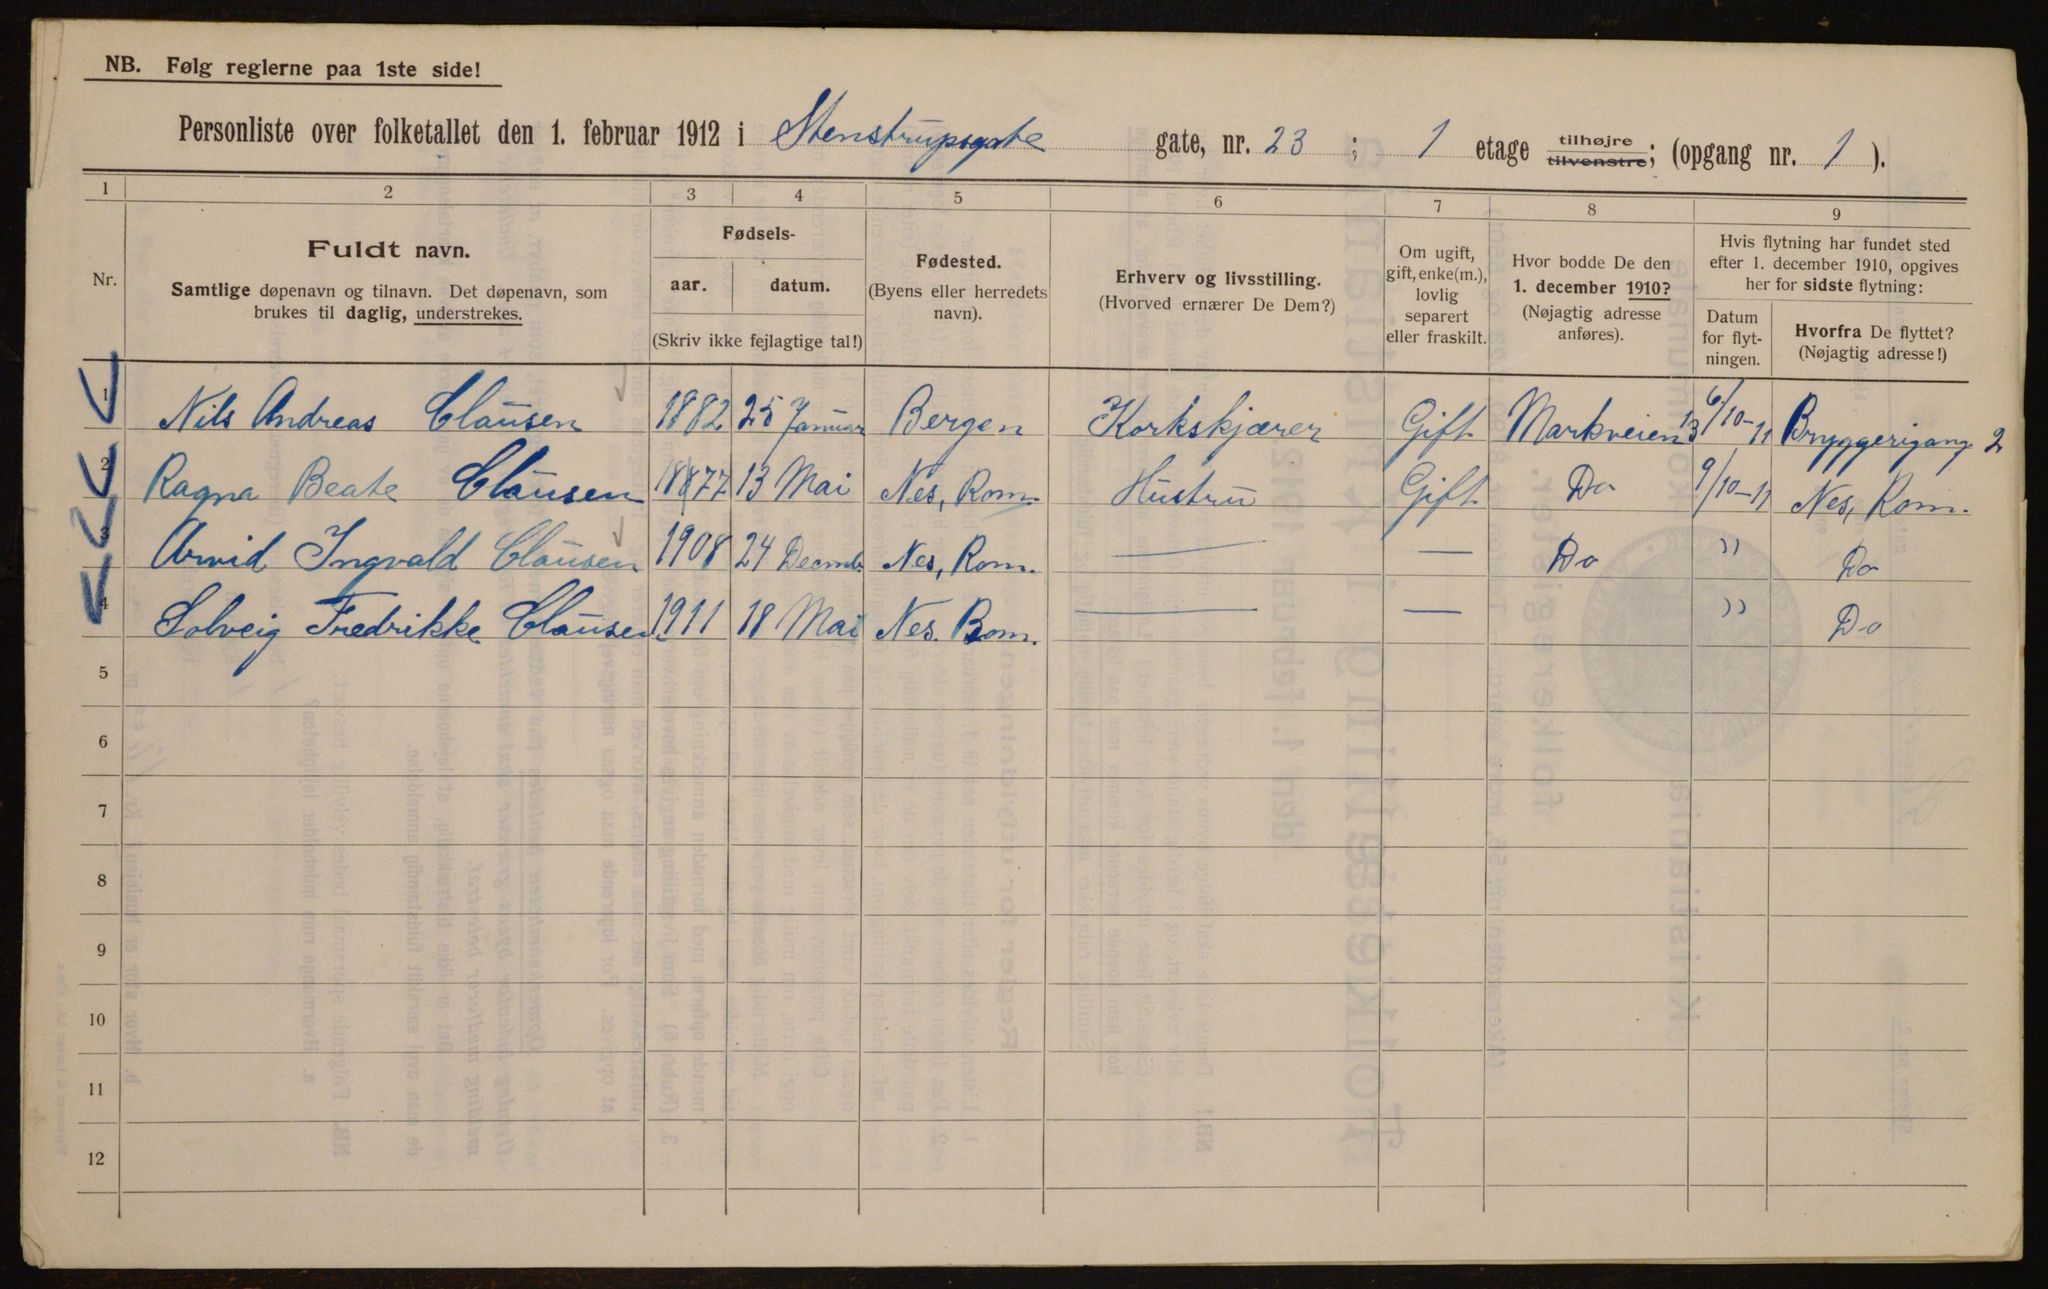 NB. Følg reglerne paa 1ste side!
Personliste over folketallet den 1. februar 1912 i Stenstrupsgate gate, nr. 23 ; 1 etage tilhøjre tilvenstre; (opgang nr. 1 ).
1 2 3 4 5 6 7 8 9
Nr.
Fuldt navn.
Samtlige døpenavn og tilnavn. Det døpenavn, som
brukes til daglig, understrekes.
Fødsels-
aar. datum.
(Skriv ikke fejlagtige tal!)
Fødested.
(Byens eller herredets
navn).
Erhverv og livsstilling.
(Hvorved ernærer De Dem?)
Om ugift,
gift, enke(m.),
lovlig
separert
eller fraskilt.
Hvor bodde De den
1. december 1910?
(Nøjagtig adresse
anføres).
Hvis flytning har fundet sted
efter 1. december 1910, opgives
her for sidste flytning:
Datum
for flyt-
ningen.
Hvorfra De flyttet?
(Nøjagtig adresse!)
1 Nils Andreas Clausen 1882 25 Januar Bergen Korkskjærer Gift Markveien 13 6/10-11 Bryggerigang 2
2 Ragna Beate Clausen 1877 13 Mai Nes, Rom. Hustru Gift Do 9/10-11 Nes, Rom.
3 Arvid Ingvald Clausen 1908 24 Decmb. Nes, Rom. — — Do " Do
4 Solveig Fredrikke Clausen 1911 18 Mai Nes. Rom. — — " Do
5
6
7
8
9
10
11
12